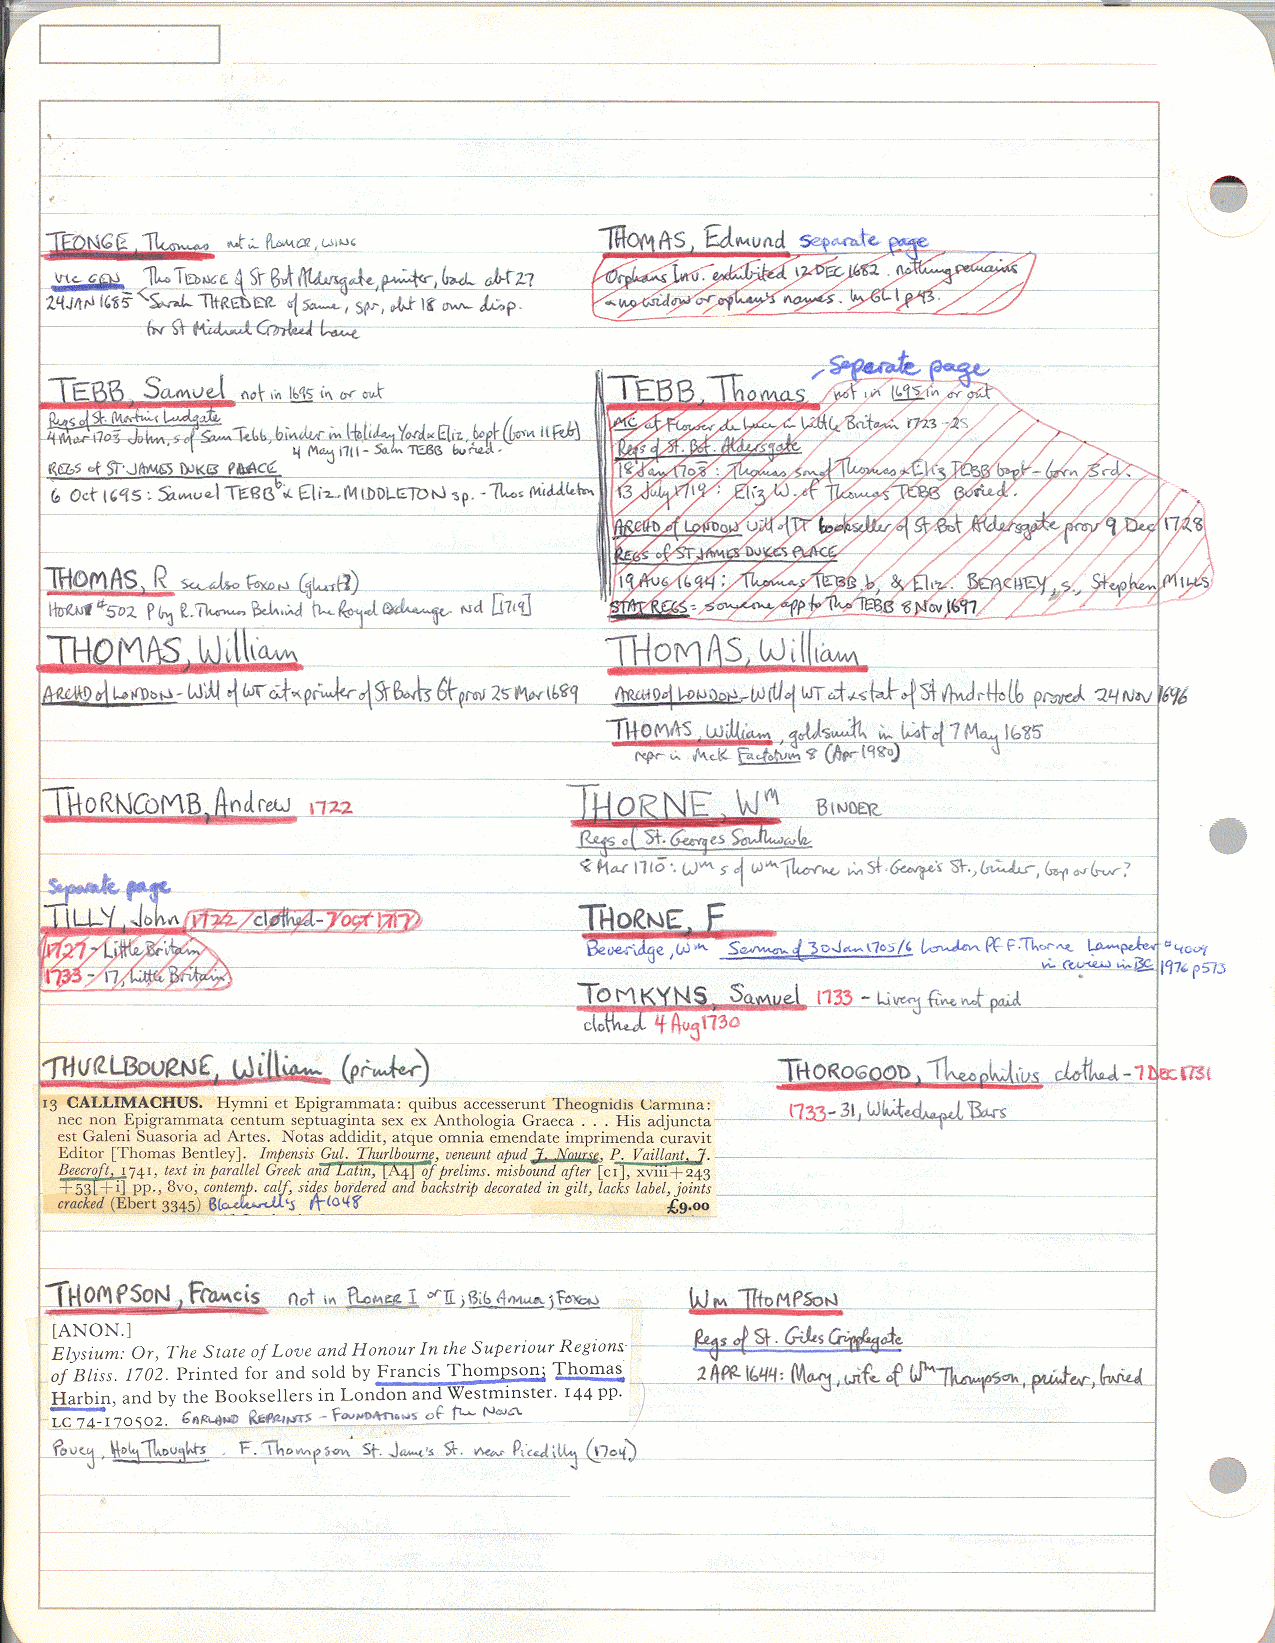 TEONGE, Thomas not in PLOMER, WING
VIC GEN Tho TEONGE of St Bot Aldersgate, printer, bach abt 27
24 JAN 1685 Sarah THREDER of same, spr, abt 18 own disp.
for St Michael Crooked Lane
THOMAS, Edmund separate page
Orphans Inv. exhibited 12 DEC 1682. nothing remains
no widow or orphan's names. In GL 1 p 43.
TEBB, Samuel not in 1695 in or out
Regs of St. Martins Ludgate
4 Mar 1703 John, s of Sam Tebb, binder in Holiday Yard & Eliz, bapt (born 11 Feb)
4 May 1711 - Sam TEBB buried.
REGS of ST. JAMES DUKES PLACE
6 Oct 1695: Samuel TEBB b & Eliz. MIDDLETON sp. - Thos Middleton
separate page
TEBB, Thomas not in 1695 in or out
MC at Flower de Luce in Little Britain 1723-28
Regs of St. Bot. Aldersgate
18 Jan 1708: Thomas son of Thomas & Eliz TEBB bapt - born 3rd.
13 July 1719: Eliz W. of Thomas TEBB Buried.
ARCHD of LONDON will of TT bookseller of St Bot Aldersgate prov 9 Dec 1728
REGS of ST JAMES DUKES PLACE
19 AUG 1694: Thomas TEBB b, & Eliz. BEACHEY, s., Stephen MILLS
STAT REGS: someone app to Tho TEBB 8 Nov 1697
THOMAS, R see also Foxon (ghost?)
HORNE #502 P by R. Thomas Behind the Royal Exchange Nd [1719]
THOMAS, William
ARCHD of LONDON - Will of WT cit & printer of St Barts Gt prov 25 Mar 1689
THOMAS, William
ARCHD of LONDON - Will of WT cit & stat of St Andr Holb proved 24 Nov 1696
THOMAS, William, goldsmith in list of 7 May 1685
repr in McK Factotum 8 (Apr 1980)
THORNCOMB, Andrew 1722
THORNE, Wm BINDER
Regs of St. Georges Southwark
8 Mar 1710: Wm s of Wm Thorne in St. George's St., binder, bap or bur?
separate page
TILLY, John 1722 / clothed - 7 Oct 1717
1727 - Little Britain
1733 - 17, Little Britain
THORNE, F
Beveridge, Wm Sermon of 30 Jan 1705/6 London Pf F. Thorne Lampeter #4009
in review in BC 1976 p 573
TOMKYNS, Samuel 1733 - Livery fine not paid
clothed 4 Aug 1730
THURLBOURNE, William (printer)
13 CALLIMACHUS. Hymni et Epigrammata: quibus accesserunt Theognidis Carmina:
nec non Epigrammata centum septuaginta sex ex Anthologia Graeca . . . His adjuncta
est Galeni Suasoria ad Artes. Notas addidit, atque omnia emendate imprimenda curavit
Editor [Thomas Bentley]. Impensis Gul. Thurlbourne, veneunt apud J. Nourse, P. Vaillant, J.
Beecroft, 1741, text in parallel Greek and Latin, [A4] of prelims. misbound after [c1], xviii+243
+53[+1] pp., 8vo, contemp. calf, sides bordered and backstrip decorated in gilt, lacks label, joints
cracked (Ebert 3345) Blackwell's A1048 £9.00
THOROGOOD, Theophilius clothed - 7 DEC 1731
1733 - 31, Whitechapel Bars
THOMPSON, Francis not in PLOMER I or II; Bib Annua; FOXON
[ANON.]
Elysium: Or, The State of Love and Honour In the Superiour Regions
of Bliss. 1702. Printed for and sold by Francis Thompson; Thomas
Harbin, and by the Booksellers in London and Westminster. 144 pp.
LC 74-170502. GARLAND REPRINTS - FOUNDATIONS of the Novel
Povey, Holy Thoughts. F. Thompson St. Jame's St. near Picadilly (1704)
Wm THOMPSON
Regs of St. Giles Cripplegate
2 APR 1644: Mary, wife of Wm Thompson, printer, buried